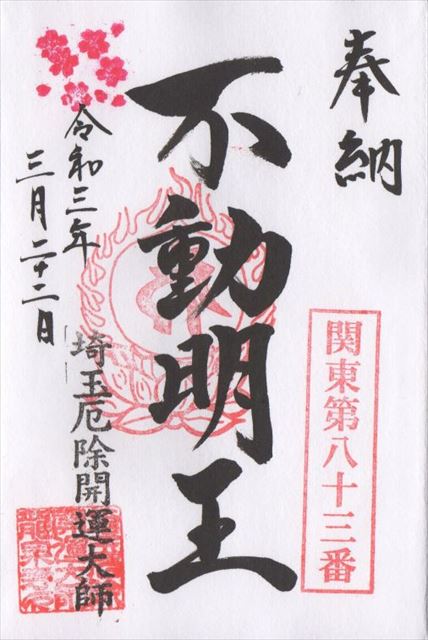 奉納
関東第八十三番
不動明王
令和三年
三月二十二日
埼玉厄除開運大師